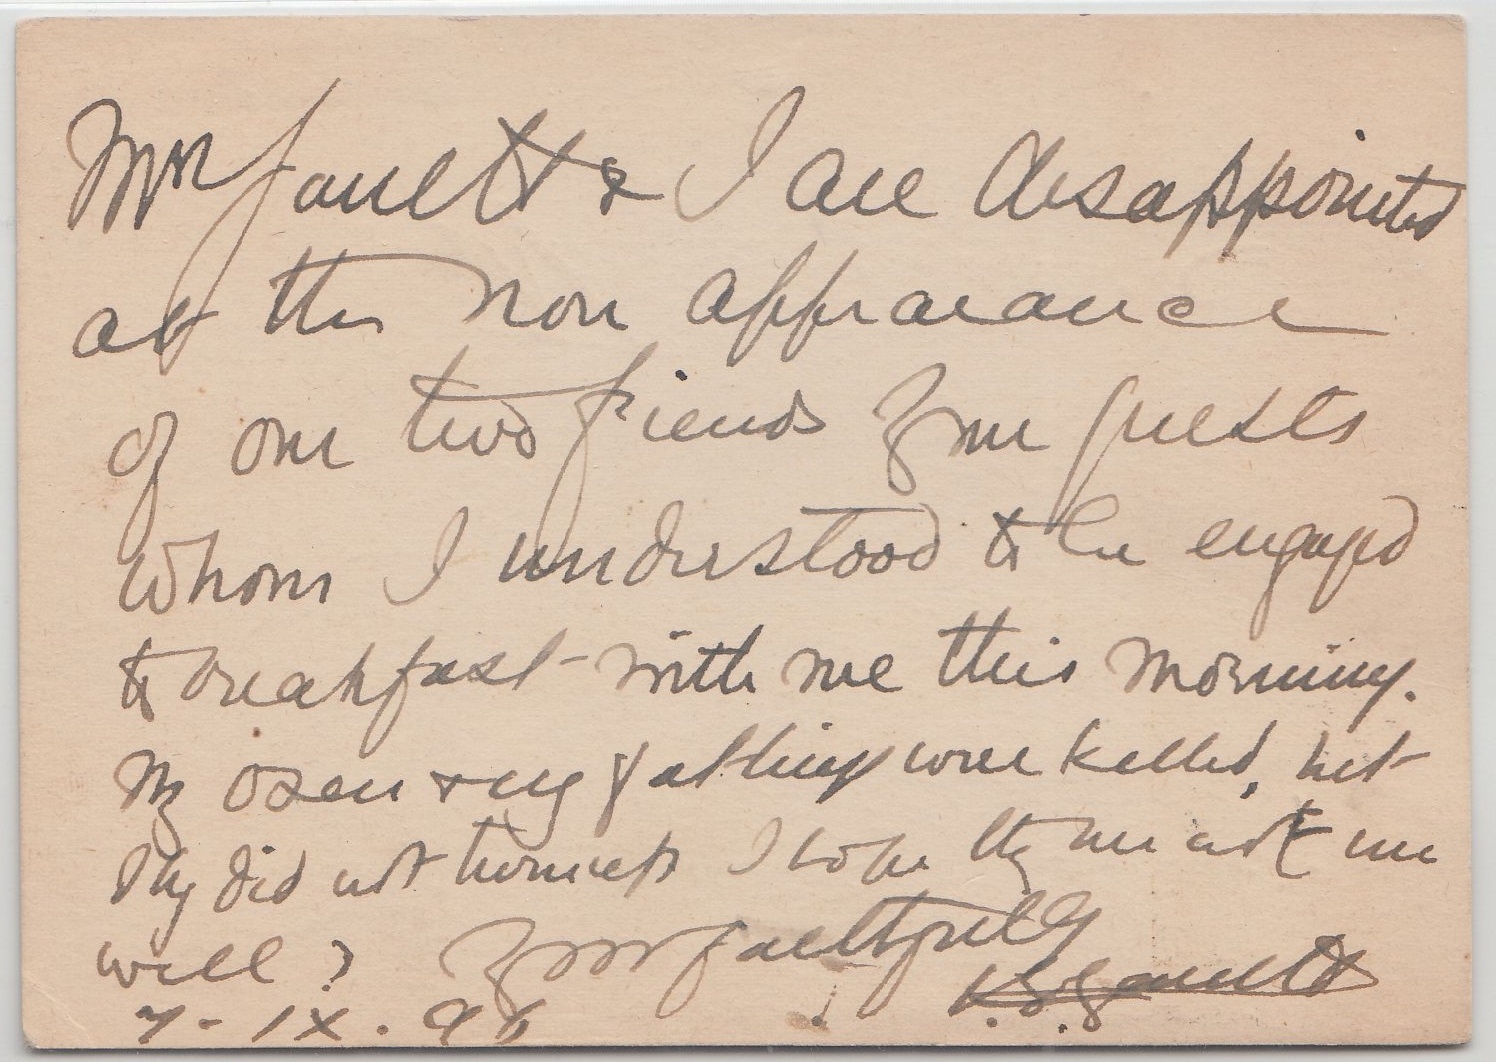 Mrs Jaulett & I are disappointed
at the non appearance
of our two friends & our guests
whom I understood to be engaged
to breakfast with me this morning.
My oxen & my fatlings were killed, but
they did not turn up I hope they are not un
well? Yours faithfully
7 - IX. 96